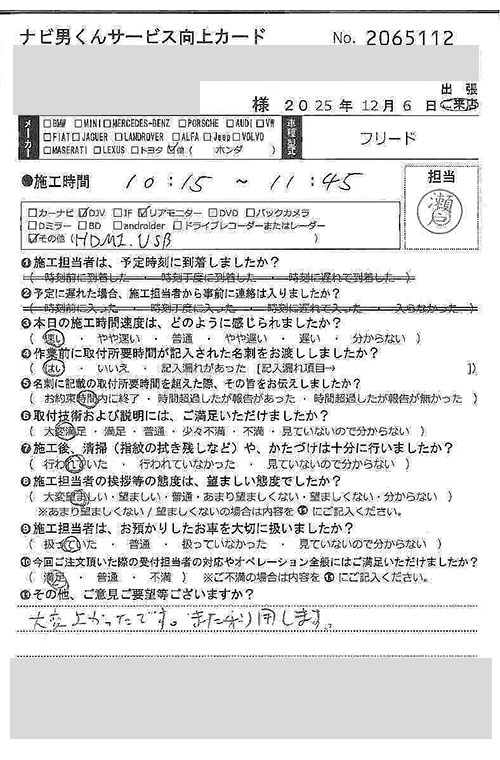 ナビ男くんサービス向上カード No. 2065112
様 2025年12月6日 出張・ご来店
メーカー □BMW □MINI □MERCEDES-BENZ □PORSCHE □AUDI □VW
□FIAT □JAGUER □LANDROVER □ALFA □Jeep □VOLVO
□MASERATI □LEXUS □トヨタ ☑他( ホンダ )
車種型式 フリード
●施工時間 10:15 ~ 11:45
担当
□カーナビ ☑DJV □IF ☑リアモニター □DVD □バックカメラ
□Dミラー □BD □androider □ドライブレコーダーまたはレーダー
☑その他(HDMI.USB )
❶施工担当者は、予定時刻に到着しましたか?
( 時刻前に到着した ・ 時刻丁度に到着した ・ 時刻に遅れて到着した )
❷予定に遅れた場合、施工担当者から事前に連絡は入りましたか?
( 時刻前に入った ・ 時刻丁度に入った ・ 時刻に遅れて入った ・ 入らなかった )
❸本日の施工時間速度は、どのように感じられましたか?
( 速い ・ やや速い ・ 普通 ・ やや遅い ・ 遅い ・ 分からない )
❹作業前に取付所要時間が記入された名刺をお渡ししましたか?
( はい ・ いいえ ・ 記入漏れがあった [記入漏れ項目→ ])
❺名刺に記載の取付所要時間を超えた際、その旨をお伝えしましたか?
( お約束時間内に終了 ・ 時間超過したが報告があった ・ 時間超過したが報告が無かった )
❻取付技術および説明には、ご満足いただけましたか?
( 大変満足 ・ 満足 ・ 普通 ・ 少々不満 ・ 不満 ・ 見ていないので分からない )
❼施工後、清掃(指紋の拭き残しなど)や、かたづけは十分に行いましたか?
( 行われていた ・ 行われていなかった ・ 見ていないので分からない )
❽施工担当者の挨拶等の態度は、望ましい態度でしたか?
( 大変望ましい ・ 望ましい ・ 普通 ・ あまり望ましくない ・ 望ましくない ・ 分からない )
※あまり望ましくない / 望ましくないの場合は内容を⓫にご記入ください。
❾施工担当者は、お預かりしたお車を大切に扱いましたか?
( 扱っていた ・ 普通 ・ 扱っていなかった ・ 見ていないので分からない )
❿今回ご注文頂いた際の受付担当者の対応やオペレーション全般にはご満足いただけましたか?
( 満足 ・ 普通 ・ 不満 ) ※ご不満の場合は内容を⓫にご記入ください。
⓫その他、ご意見ご要望等ございますか?
大変よかったです。また利用します。